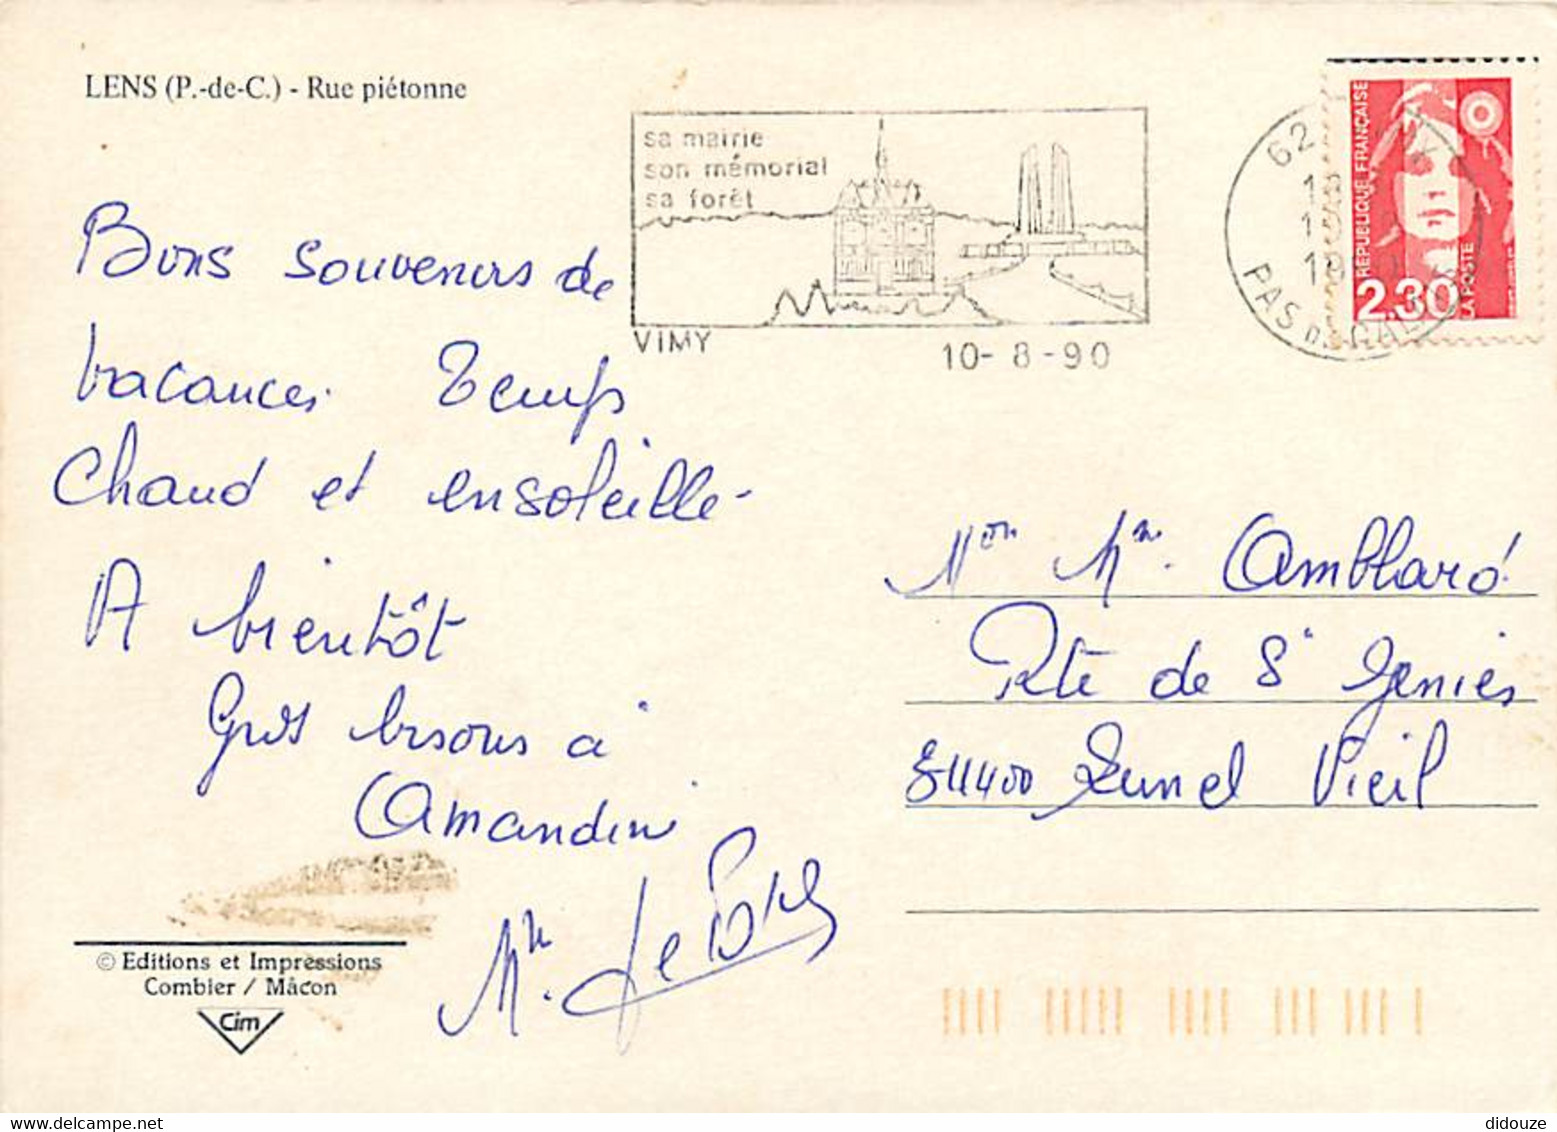 LENS (P.-de-C.) - Rue piétonne
sa mairie
son mémorial
sa forêt
VIMY
10-8-90
62
PAS DE CALAIS
REPUBLIQUE FRANÇAISE
2.30
LA POSTE
Bons souvenirs de
vacances. Temps
Chaud et ensoleillé-
A bientôt
Gros bisous à
Amandine
Mme
Mr et Mme Amblard
Rte de St Geniès
34400 Lunel Vieil
© Editions et Impressions
Combier / Mâcon
Cim
didouze